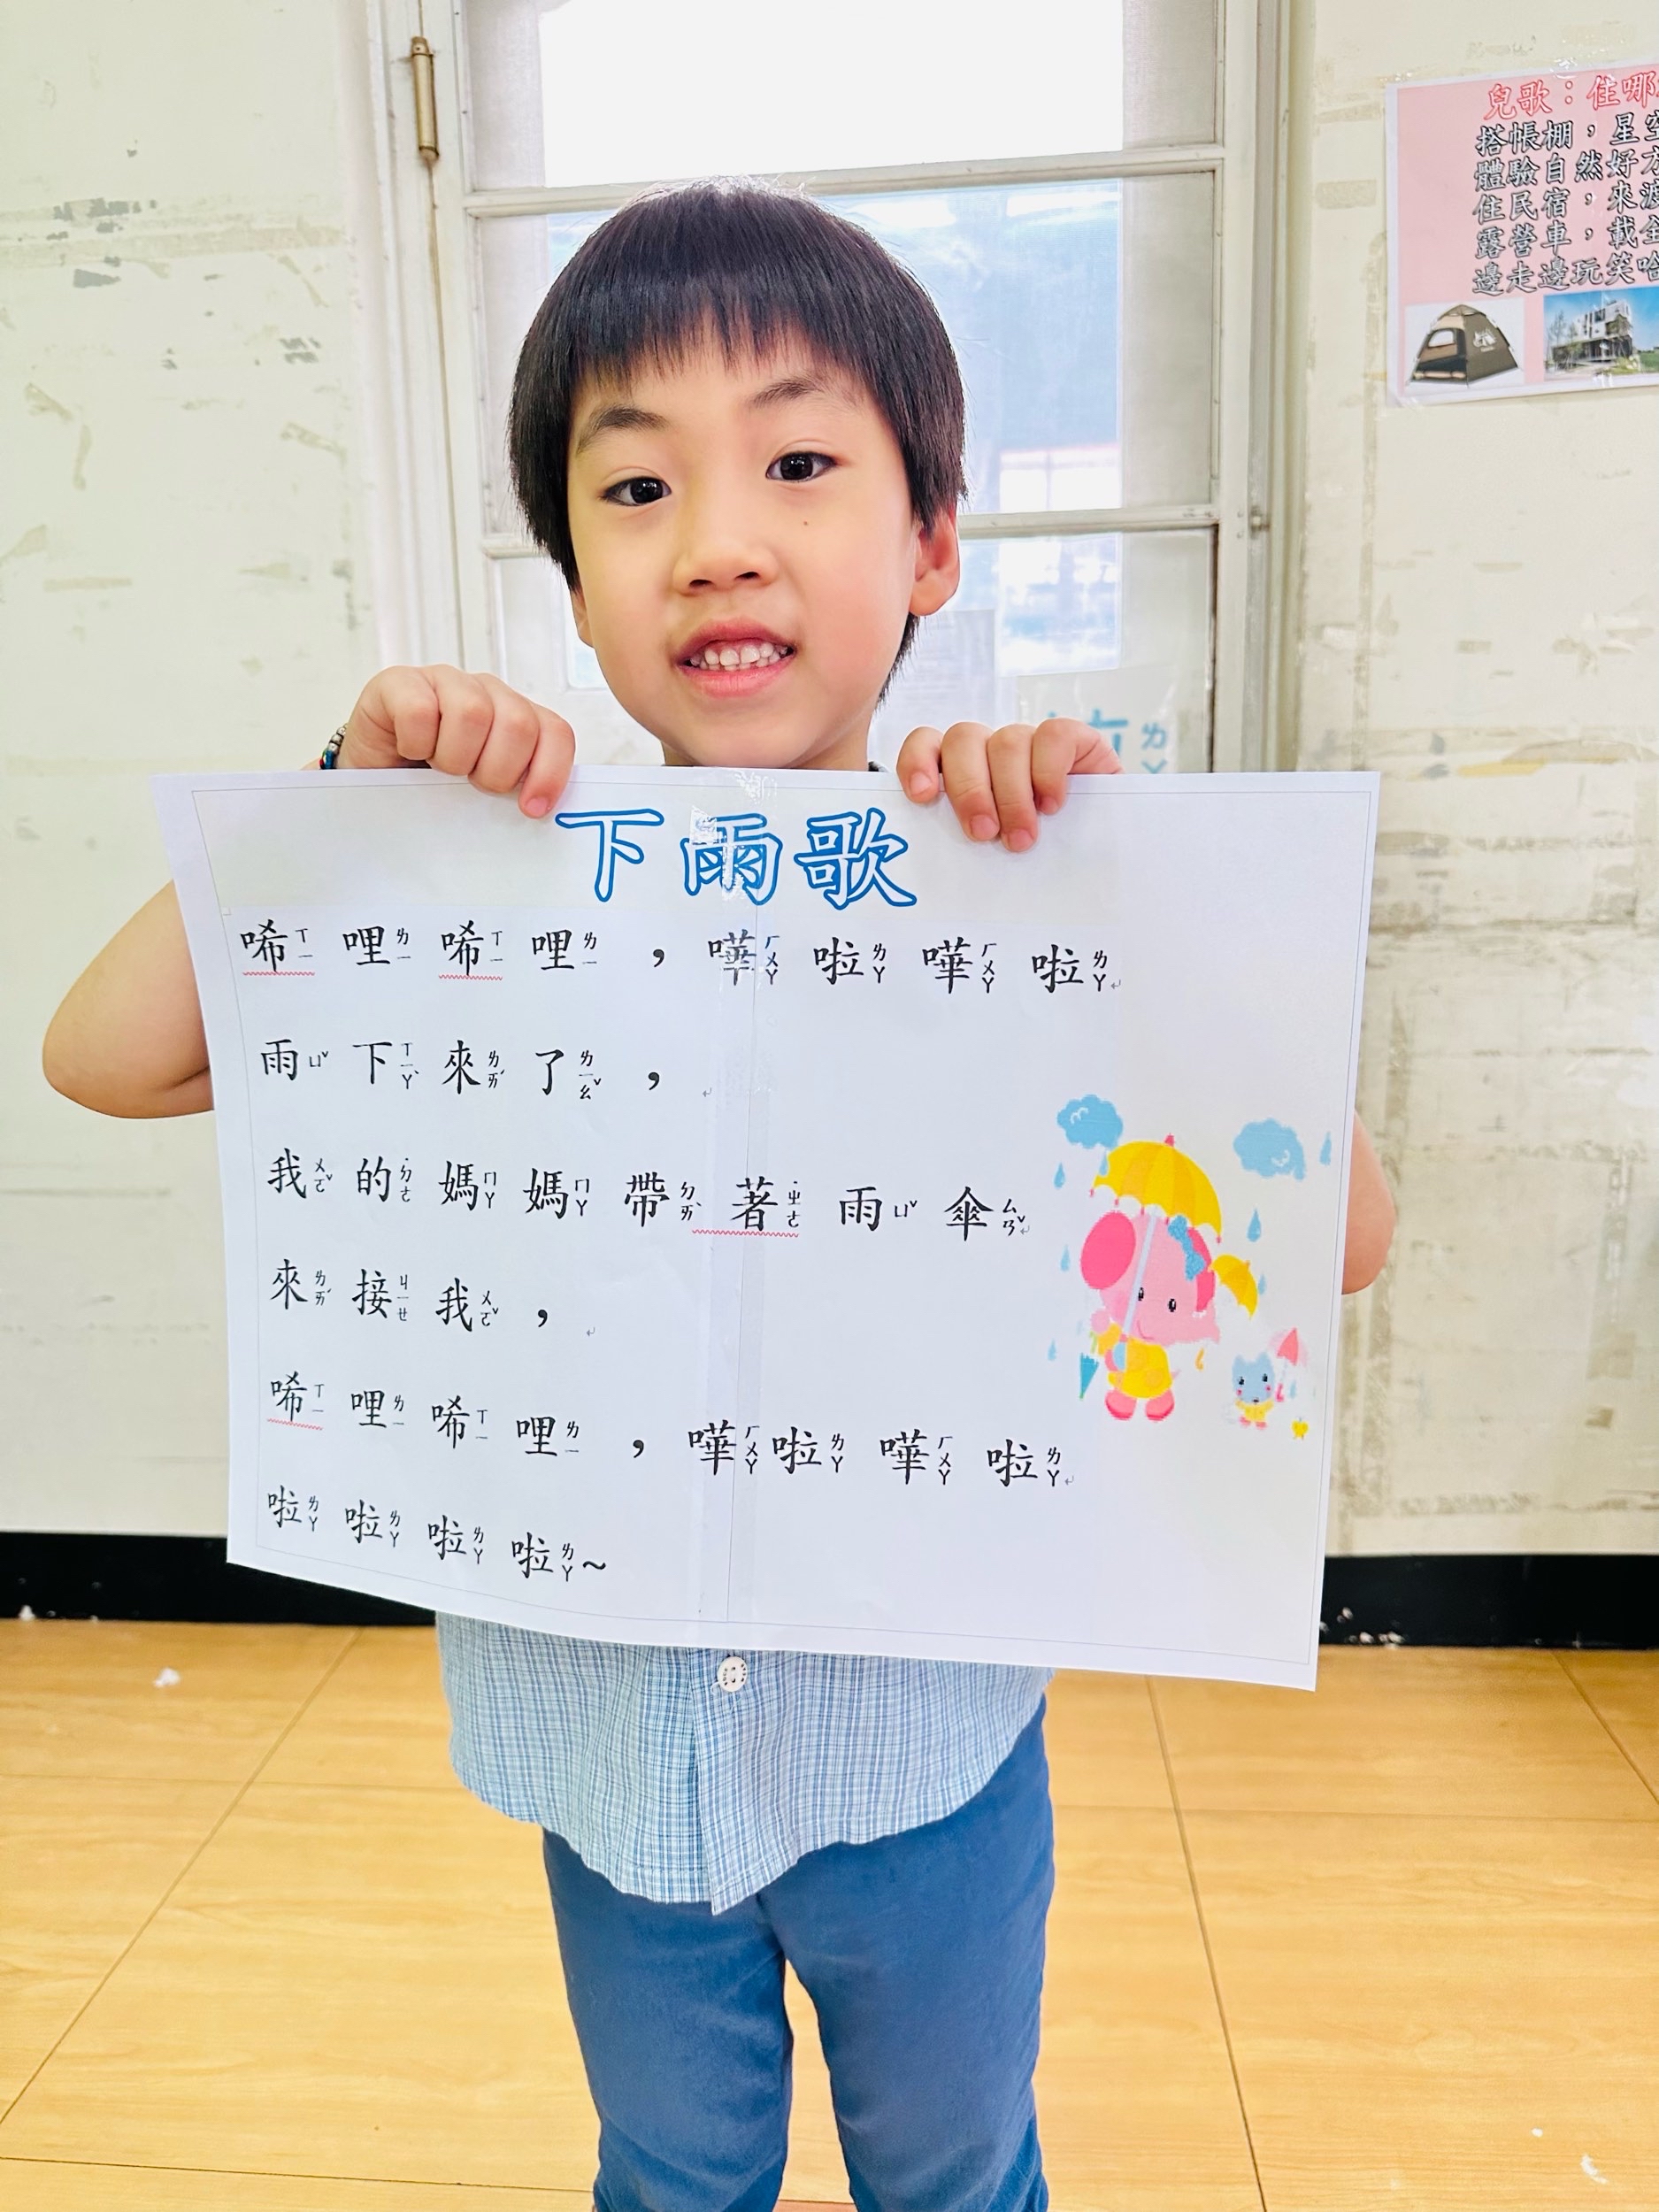 下雨歌
唏ㄒㄧ 哩ㄌㄧ 唏ㄒㄧ 哩ㄌㄧ ，嘩ㄏㄨㄚ 啦ㄌㄚ 嘩ㄏㄨㄚ 啦ㄌㄚ
雨ㄩˇ 下ㄒㄧㄚˋ 來ㄌㄞˊ 了ㄌㄧㄠˇ ，
我ㄨㄛˇ 的˙ㄉㄜ 媽ㄇㄚ 媽ㄇㄚ 帶ㄉㄞˋ 著˙ㄓㄜ 雨ㄩˇ 傘ㄙㄢˇ
來ㄌㄞˊ 接ㄐㄧㄝ 我ㄨㄛˇ ，
唏ㄒㄧ 哩ㄌㄧ 唏ㄒㄧ 哩ㄌㄧ ，嘩ㄏㄨㄚ 啦ㄌㄚ 嘩ㄏㄨㄚ 啦ㄌㄚ
啦ㄌㄚ 啦ㄌㄚ 啦ㄌㄚ 啦ㄌㄚ～
兒歌：住哪
搭帳棚，星空
體驗自然好方
住民宿，來渡
露營車，載全
邊走邊玩笑哈